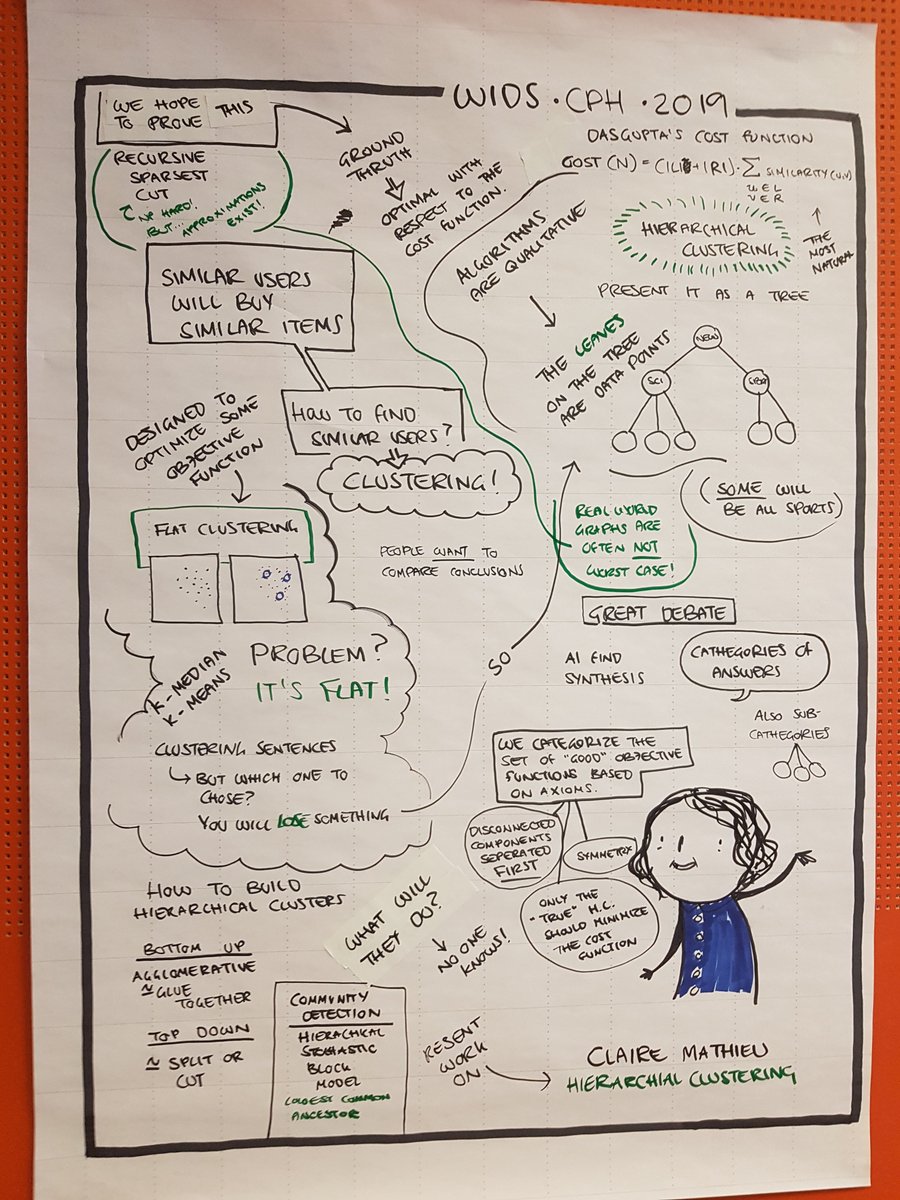 WIDS · CPH · 2019
WE HOPE
TO PROVE THIS
RECURSIVE
SPARSEST
CUT
NP HARD!
BUT... APPROXIMATIONS
EXIST!
GROUND
THRUTH
OPTIMAL WITH
RESPECT TO THE
COST FUNCTION.
ALGORITHMS
ARE QUALITATIVE
DASGUPTA'S COST FUNCTION
COST (N) = (|L|+|R|) · Σ SIMILARITY(U,V)
U E L
V E R
THE
MOST
NATURAL
HIERARCHICAL
CLUSTERING
PRESENT IT AS A TREE
THE LEAVES
ON THE TREE
ARE DATA POINTS
NEWS
SCI
(SOME WILL
BE ALL SPORTS)
SIMILAR USERS
WILL BUY
SIMILAR ITEMS
HOW TO FIND
SIMILAR USERS?
CLUSTERING!
DESIGNED TO
OPTIMIZE SOME
OBJECTIVE
FUNCTION
FLAT CLUSTERING
PEOPLE WANT TO
COMPARE CONCLUSIONS
REAL WORLD
GRAPHS ARE
OFTEN NOT
WORST CASE!
GREAT DEBATE
K-MEDIAN
K-MEANS
PROBLEM?
IT'S FLAT!
CLUSTERING SENTENCES
BUT WHICH ONE TO
CHOSE?
YOU WILL LOSE SOMETHING
SO
AI FIND
SYNTHESIS
CATHEGORIES OF
ANSWERS
ALSO SUB-
CATHEGORIES
WE CATEGORIZE THE
SET OF "GOOD" OBJECTIVE
FUNCTIONS BASED
ON AXIOMS.
DISCONNECTED
COMPONENTS
SEPERATED
FIRST
SYMMETRY
ONLY THE
"TRUE" H.C.
SHOULD MINIMIZE
THE COST
FUNCTION
HOW TO BUILD
HIERARCHICAL CLUSTERS
BOTTOM UP
AGGLOMERATIVE
≈ GLUE
TOGETHER
TOP DOWN
≈ SPLIT OR
CUT
WHAT WILL
THEY DO?
NO ONE
KNOWS!
COMMUNITY
DETECTION
HIERACHICAL
STOCHASTIC
BLOCK
MODEL
LOWEST COMMON
ANCESTOR
RESENT
WORK
ON
CLAIRE MATHIEU
HIERARCHIAL CLUSTERING